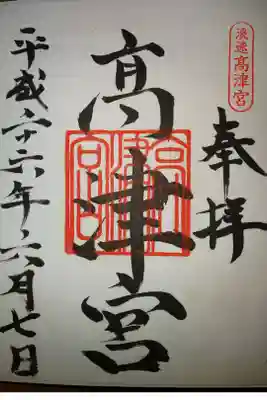 浪速高津宮
奉拝
高津宮
平成廿六年六月七日